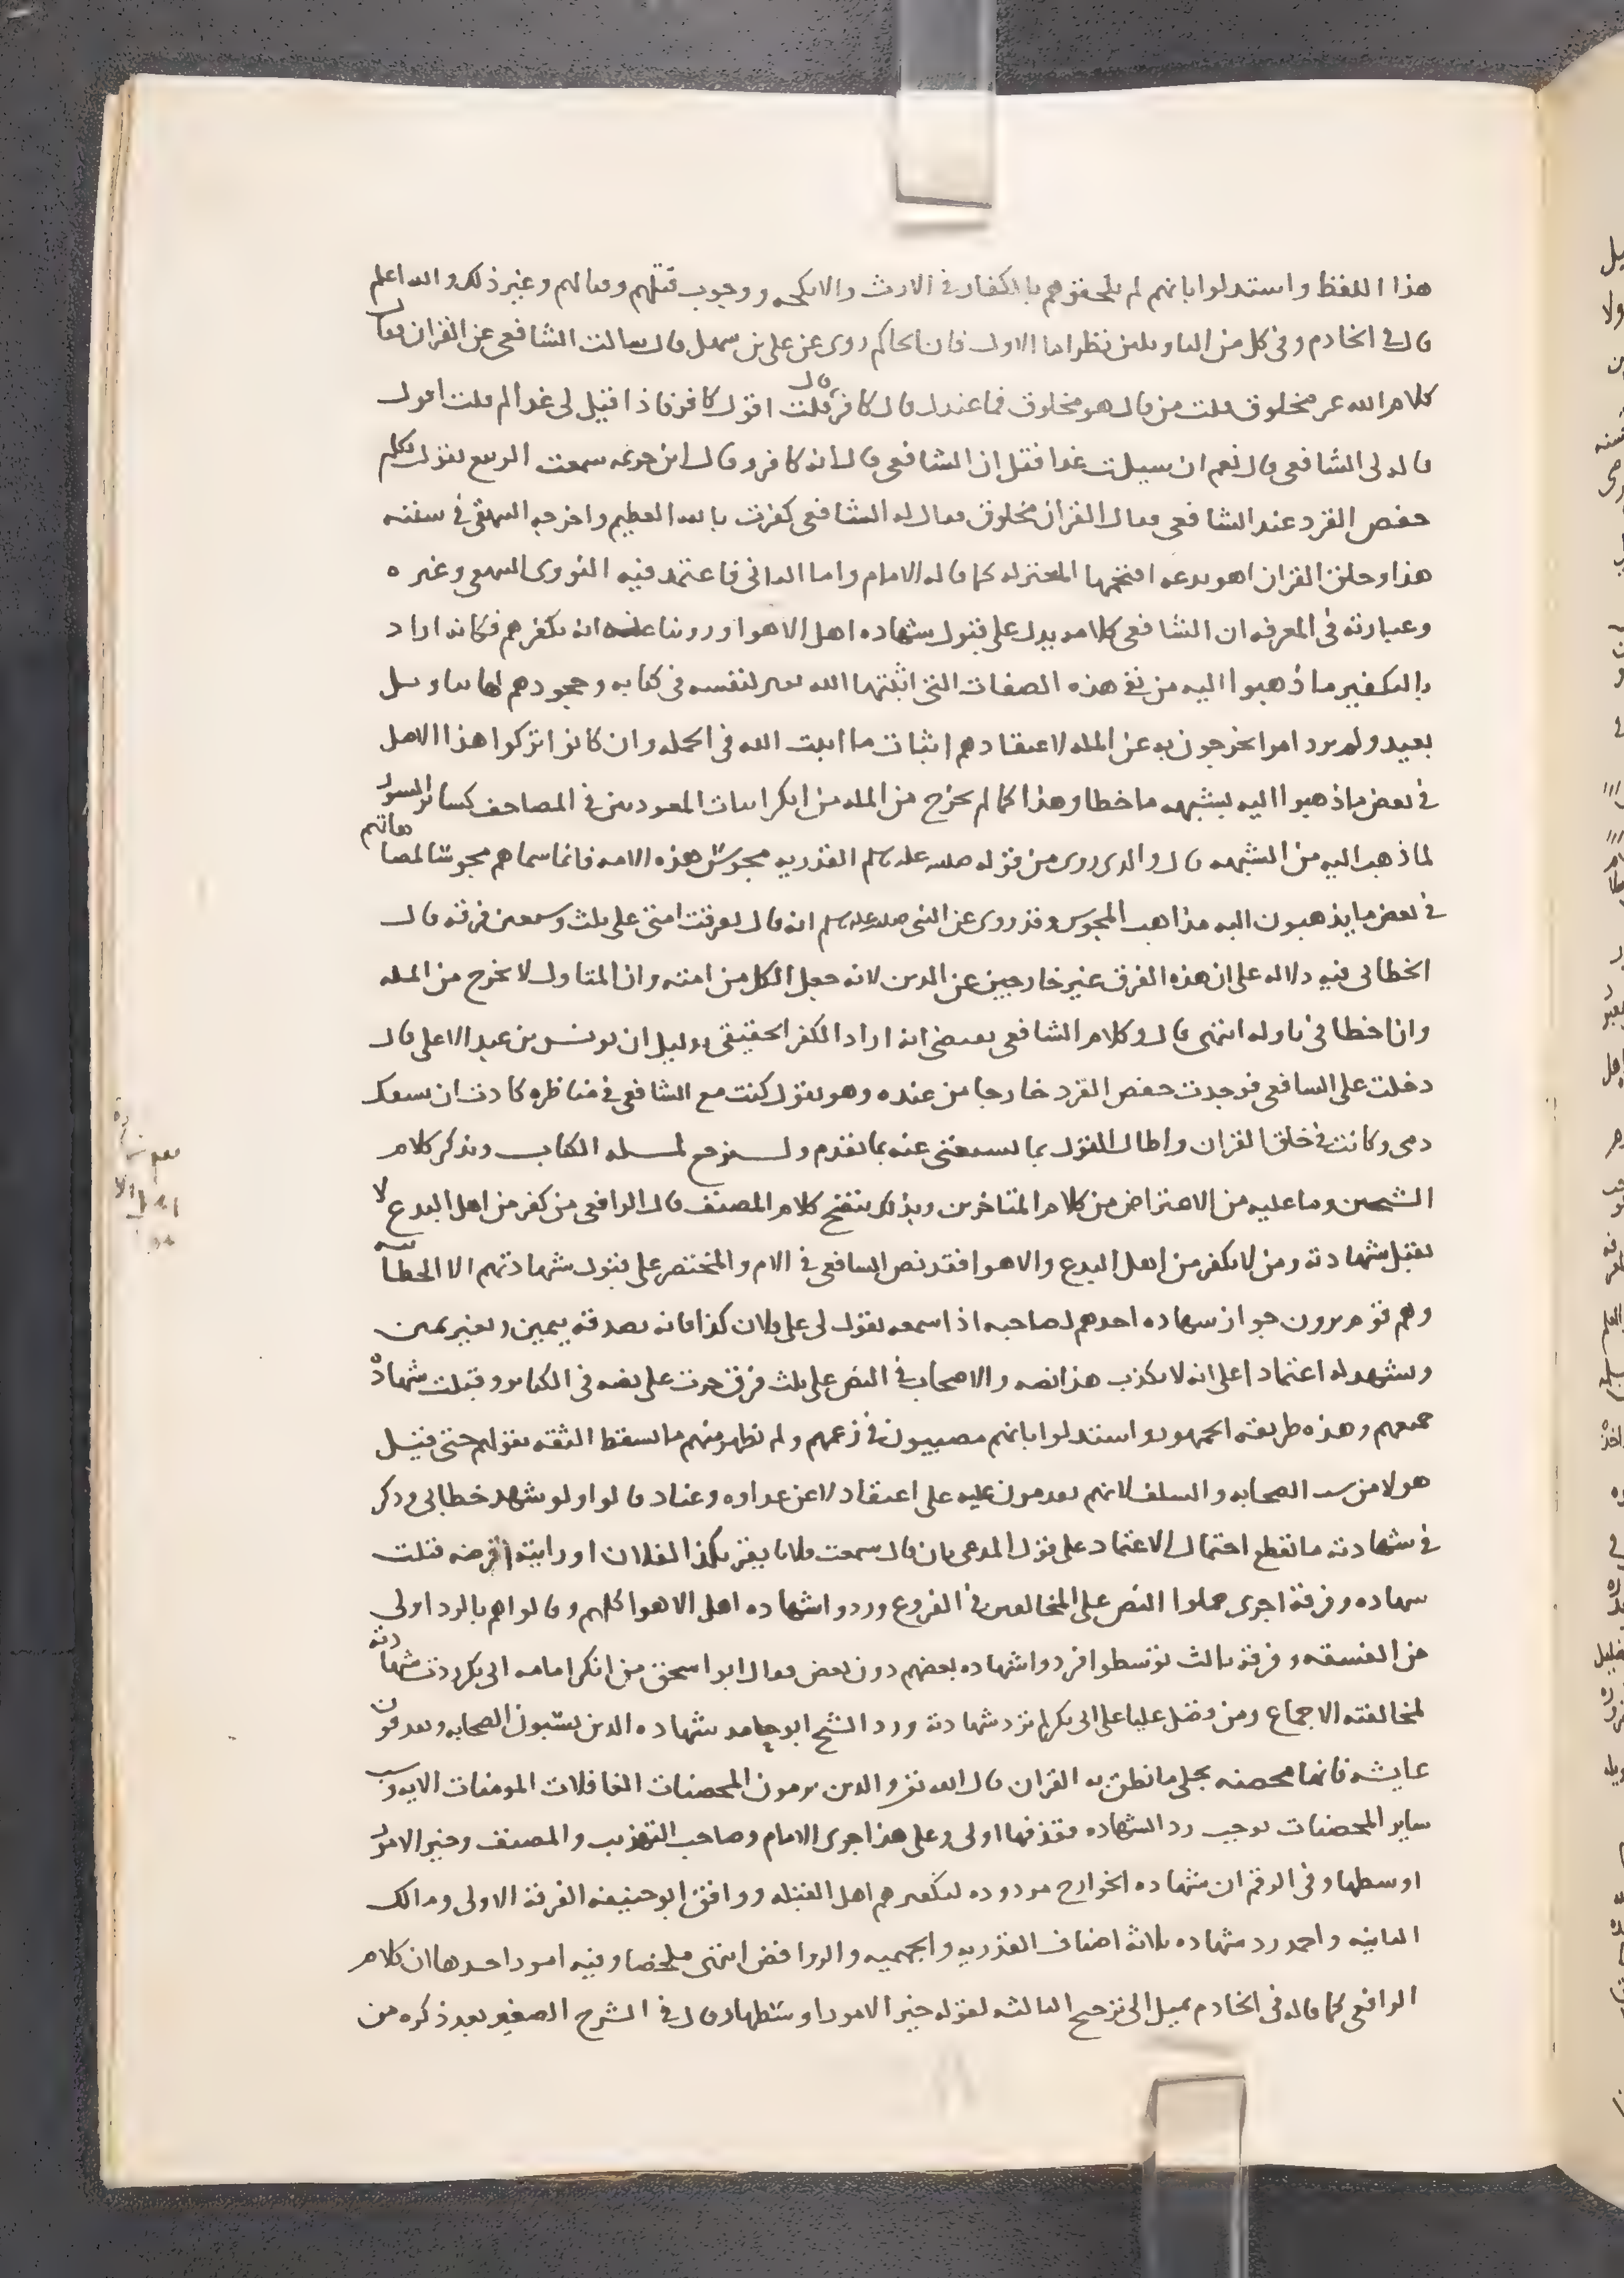 هذا اللفظ واستدلوا بانهم لم يلحقوهم بالكفار في الارث والانكحه ووجوب قتلهم وقتالهم وغير ذلك والله اعلم
قال في الخادم وفي كل من التاويلين نظر اما الاول فان الحاكم روى عن علي بن سهل قال سالت الشافعي عن القران فقال
كلام الله غير مخلوق قلت من قال هو مخلوق فما عندك قال كافر قال قلت اقول كافر فاذا قيل لي غدا لم قلت اقول
قاله لي الشافعي قال نعم ان سيلت غدا فقل ان الشافعي قال انه كافر وقال ابن خزيمه سمعت الربيع يقول تكلم
حفص القرد عند الشافعي فقال القران مخلوق فقال له الشافعي كفرت بالله العظيم واخرجه البيهقي في سننه
هذا وخلق القران اهو بدعه افتتحها المعتزله كما قاله الامام واما الثاني فاعتمد فيه النووي البيهقي وغيره
وعبارته في المعرفه ان الشافعي كلامه يدل على قبول شهاده اهل الاهوا وروينا عنه انه يكفرهم فكانه اراد
بالتكفير ما ذهبوا اليه من نفي هذه الصفات التي اثبتها الله تعالى لنفسه في كتابه وجحودهم لها بتاويل
بعيد ولم يرد امرا يخرجون به عن المله لاعتقادهم اثبات ما اثبت الله في الجمله وان كانوا تركوا هذا الاصل
في بعض ما ذهبوا اليه بشبهه ما خطا وهذا كما لم يخرج من المله من انكر اثبات المعوذتين في المصاحف كسائر السور
لما ذهب اليه من الشبهه قال والذي روى من قوله صلى الله عليه وسلم القدريه مجوس هذه الامه فانما سماهم مجوسا لمضاهاتهم
في بعض ما يذهبون اليه مذاهب المجوس وقد روى عن النبي صلى الله عليه وسلم انه قال تفرقت امتي على ثلث وسبعين فرقه قال
الخطابي فيه دلاله على ان هذه الفرق غير خارجين عن الدين لانه جعل الكل من امته وان المتاول لا يخرج من المله
وان اخطا في تاوله انتهى قال وكلام الشافعي يقتضي انه اراد الكفر الحقيقي بدليل ان يونس بن عبد الاعلى قال
دخلت على الشافعي فوجدت حفص القرد خارجا من عنده وهو يقول كنت مع الشافعي في مناظره كادت ان يسفك
دمي وكانت في خلق القران واطال القول بما يستغنى عنه بما تقدم ولنرجع لمسله الكتاب ونذكر كلام
الشيخين وما عليه من الاعتراض من كلام المتاخرين وبذلك يتضح كلام المصنف قال الرافعي من كفر من اهل البدع لا
تقبل شهادته ومن لا يكفر من اهل البدع والاهوا فقد نص الشافعي في الام والمختصر على قبول شهادتهم الا الخطابيه
وهم قوم يرون جواز شهاده احدهم لصاحبه اذا سمعه يقول لي على فلان كذا فانه يصدقه بيمين وبغير يمين
ويشهد له اعتمادا على انه لا يكذب هذا نصه والاصحاب في النص على ثلث فرق جرت على نصه في الكتاب وقبلت شهاده
جميعهم وهذه طريقه الجمهور واستدلوا بانهم مصيبون في زعمهم ولم يظهر منهم ما يسقط الثقه بقولهم حتى قبل
هولا من سب الصحابه والسلف لانهم يقدمون عليه على اعتقاد لا عن عداوه وعناد قالوا ولو شهد خطابي وذكر
في شهادته ما يقطع احتمال الاعتماد على قول المدعي بان قال سمعت فلانا يقر بكذا لفلان او رايته اقرضه قبلت
شهاده وفرقه اجرى حملوا النص على المخالفين في الفروع وردوا شهاده اهل الاهوا كلهم وقالوا هم بالرد اولى
من الفسقه وفرقه ثالثه توسطوا فردوا شهاده بعضهم دون بعض فقال ابو اسحق من انكر امامه ابي بكر ردت شهادته
لمخالفته الاجماع ومن فضل عليا على ابي بكر لم ترد شهادته ورد الشيخ ابو حامد شهاده الذين يسبون الصحابه ويقذفون
عايشه فانها محصنه بجلي ما نطق به القران قال الله تعالى والذين يرمون المحصنات الغافلات المومنات الايه وقذف
ساير المحصنات يوجب رد الشهاده فقذفها اولى وعلى هذا جرى الامام وصاحب التهذيب والمصنف وخير الامور
اوسطها وفي الرقم ان شهاده الخوارج مردوده لتكفيرهم اهل القبله ووافق ابو حنيفه الفرقه الاولى ومالك
الثانيه واحمد رد شهاده ثلاثه اصناف القدريه والجهميه والروافض انتهى ملخصا وفيه امور احدها ان كلام
الرافعي كما قاله في الخادم يميل الى ترجيح الثالثه لقوله خير الامور اوسطها وقال في الشرح الصغير بعد ذكره من